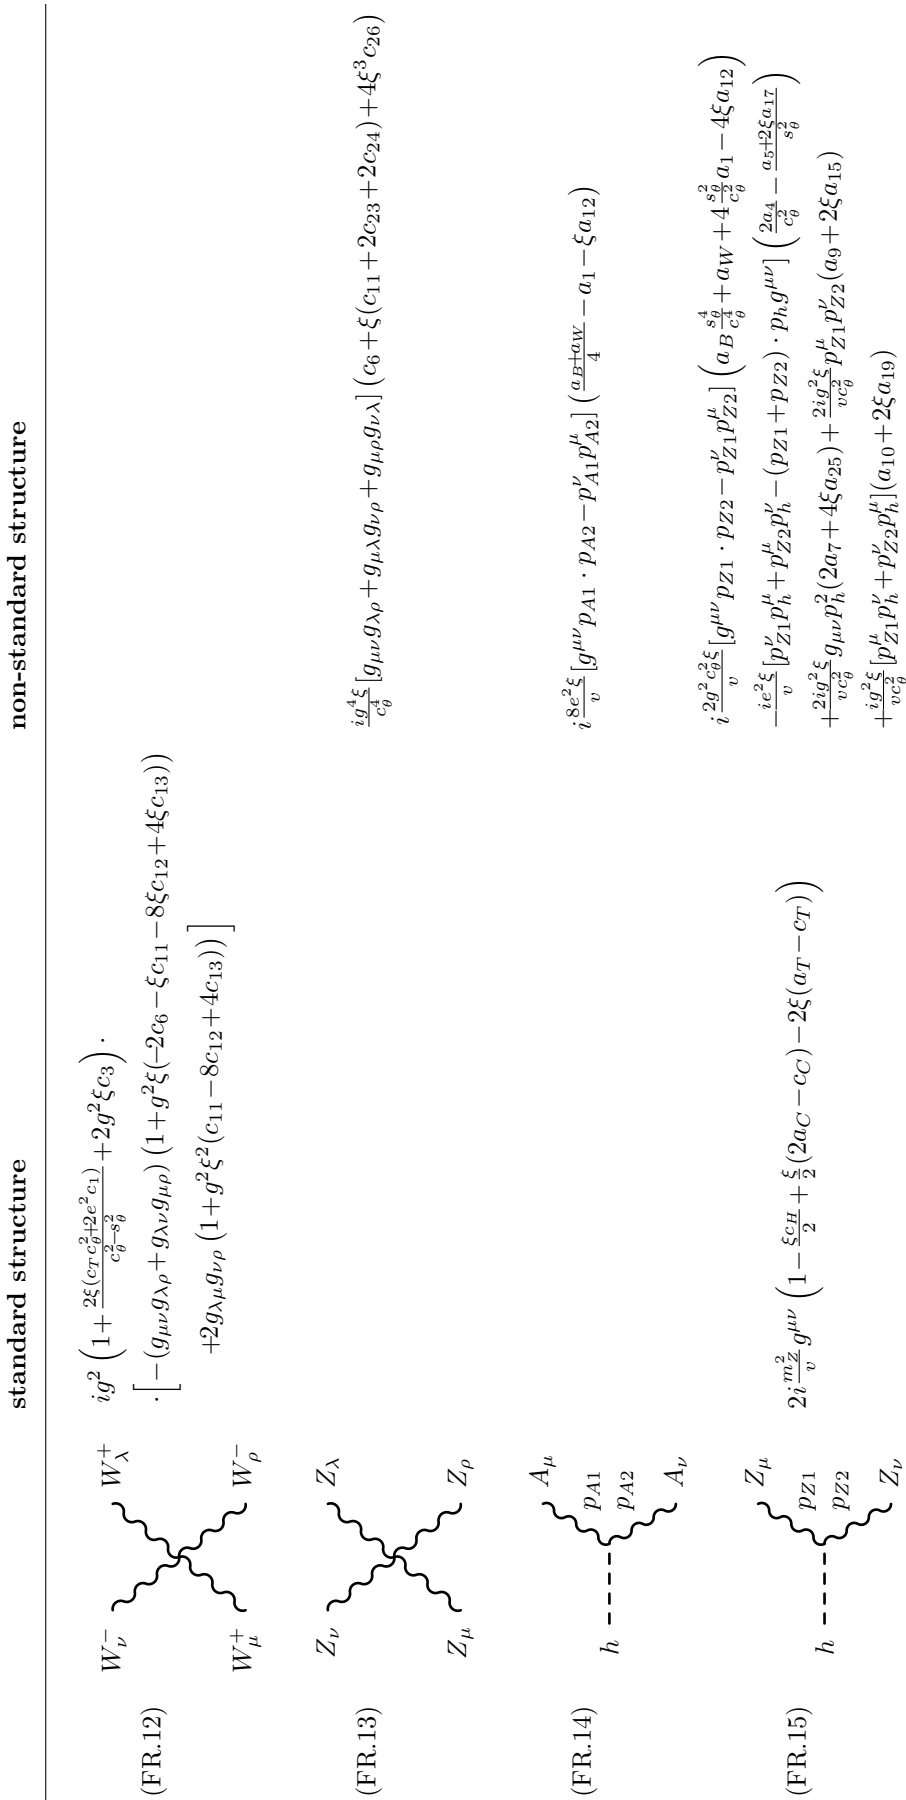 standard structure non-standard structure
(FR.12) W_ν^- W_λ^+ W_μ^+ W_ρ^-
ig^2 \left( 1 + \frac{2ξ(c_T c_θ^2 + 2e^2 c_1)}{c_θ^2 - s_θ^2} + 2g^2 ξ c_3 \right) ·
· \left[ -(g_{μν} g_{λρ} + g_{λν} g_{μρ}) \left( 1 + g^2 ξ(-2c_6 - ξc_{11} - 8ξc_{12} + 4ξc_{13}) \right)
+2g_{λμ} g_{νρ} \left( 1 + g^2 ξ^2 (c_{11} - 8c_{12} + 4c_{13}) \right) \right]
(FR.13) Z_ν Z_λ Z_μ Z_ρ
\frac{ig^4 ξ}{c_θ^4} [g_{μν} g_{λρ} + g_{μλ} g_{νρ} + g_{μρ} g_{νλ}] \left( c_6 + ξ(c_{11} + 2c_{23} + 2c_{24}) + 4ξ^3 c_{26} \right)
(FR.14) h A_μ p_{A1} p_{A2} A_ν
i\frac{8e^2 ξ}{v} [g^{μν} p_{A1} · p_{A2} - p_{A1}^ν p_{A2}^μ] \left( \frac{a_B + a_W}{4} - a_1 - ξa_{12} \right)
(FR.15) h Z_μ p_{Z1} p_{Z2} Z_ν
2i\frac{m_Z^2}{v} g^{μν} \left( 1 - \frac{ξc_H}{2} + \frac{ξ}{2}(2a_C - c_C) - 2ξ(a_T - c_T) \right)
i\frac{2g^2 c_θ^2 ξ}{v} [g^{μν} p_{Z1} · p_{Z2} - p_{Z1}^ν p_{Z2}^μ] \left( a_B \frac{s_θ^4}{c_θ^4} + a_W + 4\frac{s_θ^2}{c_θ^2} a_1 - 4ξa_{12} \right)
-\frac{ie^2 ξ}{v} [p_{Z1}^ν p_h^μ + p_{Z2}^μ p_h^ν - (p_{Z1} + p_{Z2}) · p_h g^{μν}] \left( \frac{2a_4}{c_θ^2} - \frac{a_5 + 2ξa_{17}}{s_θ^2} \right)
+\frac{2ig^2 ξ}{vc_θ^2} g_{μν} p_h^2 (2a_7 + 4ξa_{25}) + \frac{2ig^2 ξ}{vc_θ^2} p_{Z1}^μ p_{Z2}^ν (a_9 + 2ξa_{15})
+\frac{ig^2 ξ}{vc_θ^2} [p_{Z1}^μ p_h^ν + p_{Z2}^ν p_h^μ] (a_{10} + 2ξa_{19})